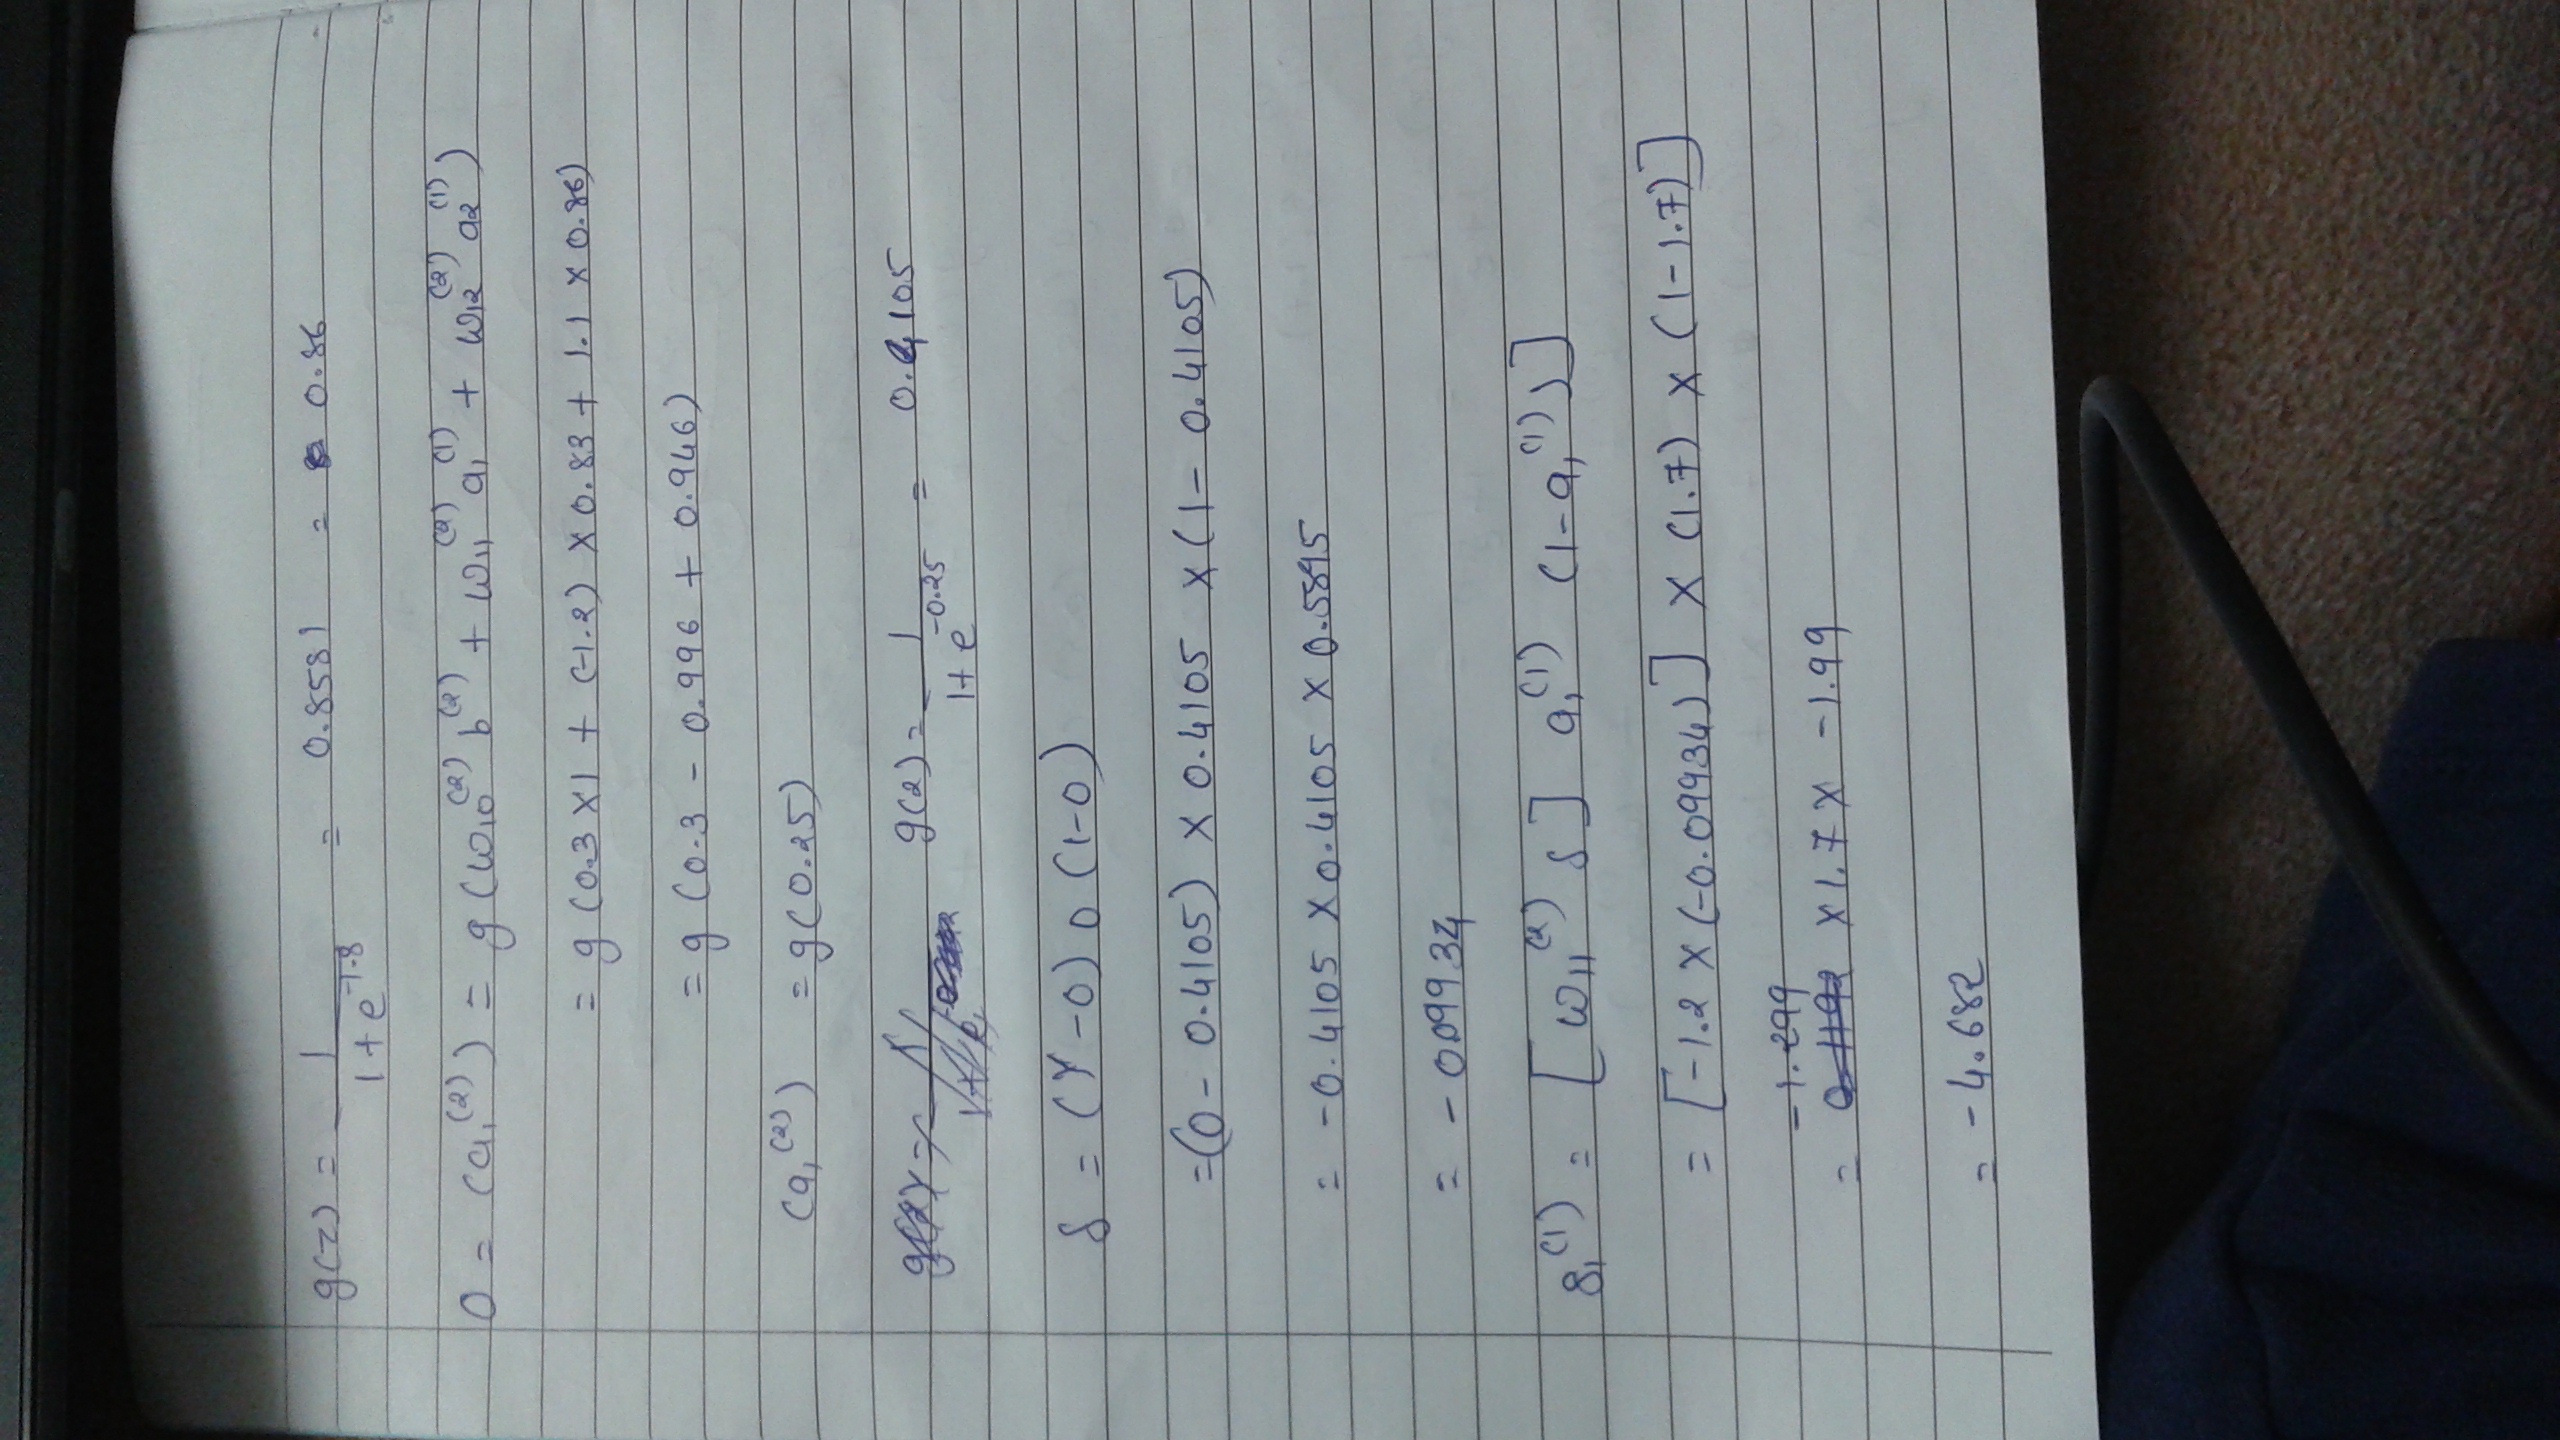 g(z) = 1 / 1+e^-1.8 = 0.8581 = 0.86
O = (a₁^(2)) = g(ω₁₀^(2) b^(2) + ω₁₁^(2) a₁^(1) + ω₁₂^(2) a₂^(1))
= g(0.3×1 + (-1.2) × 0.83 + 1.1 × 0.86)
= g(0.3 - 0.996 + 0.946)
(a₁^(2)) = g(0.25)
g(z) = 1 / 1+e^-0.25 = 0.4105
δ = (Y-O) O (1-O)
=(0 - 0.4105) × 0.4105 × (1 - 0.4105)
= -0.4105 × 0.4105 × 0.5895
= -0.09934
δ₁^(1) = [ω₁₁^(2) δ] a₁^(1) (1-a₁^(1))]
= [-1.2 × (-0.09934)] × (1.7) × (1-1.7)]
-1.299
= × 1.7 × -1.99
= -4.682